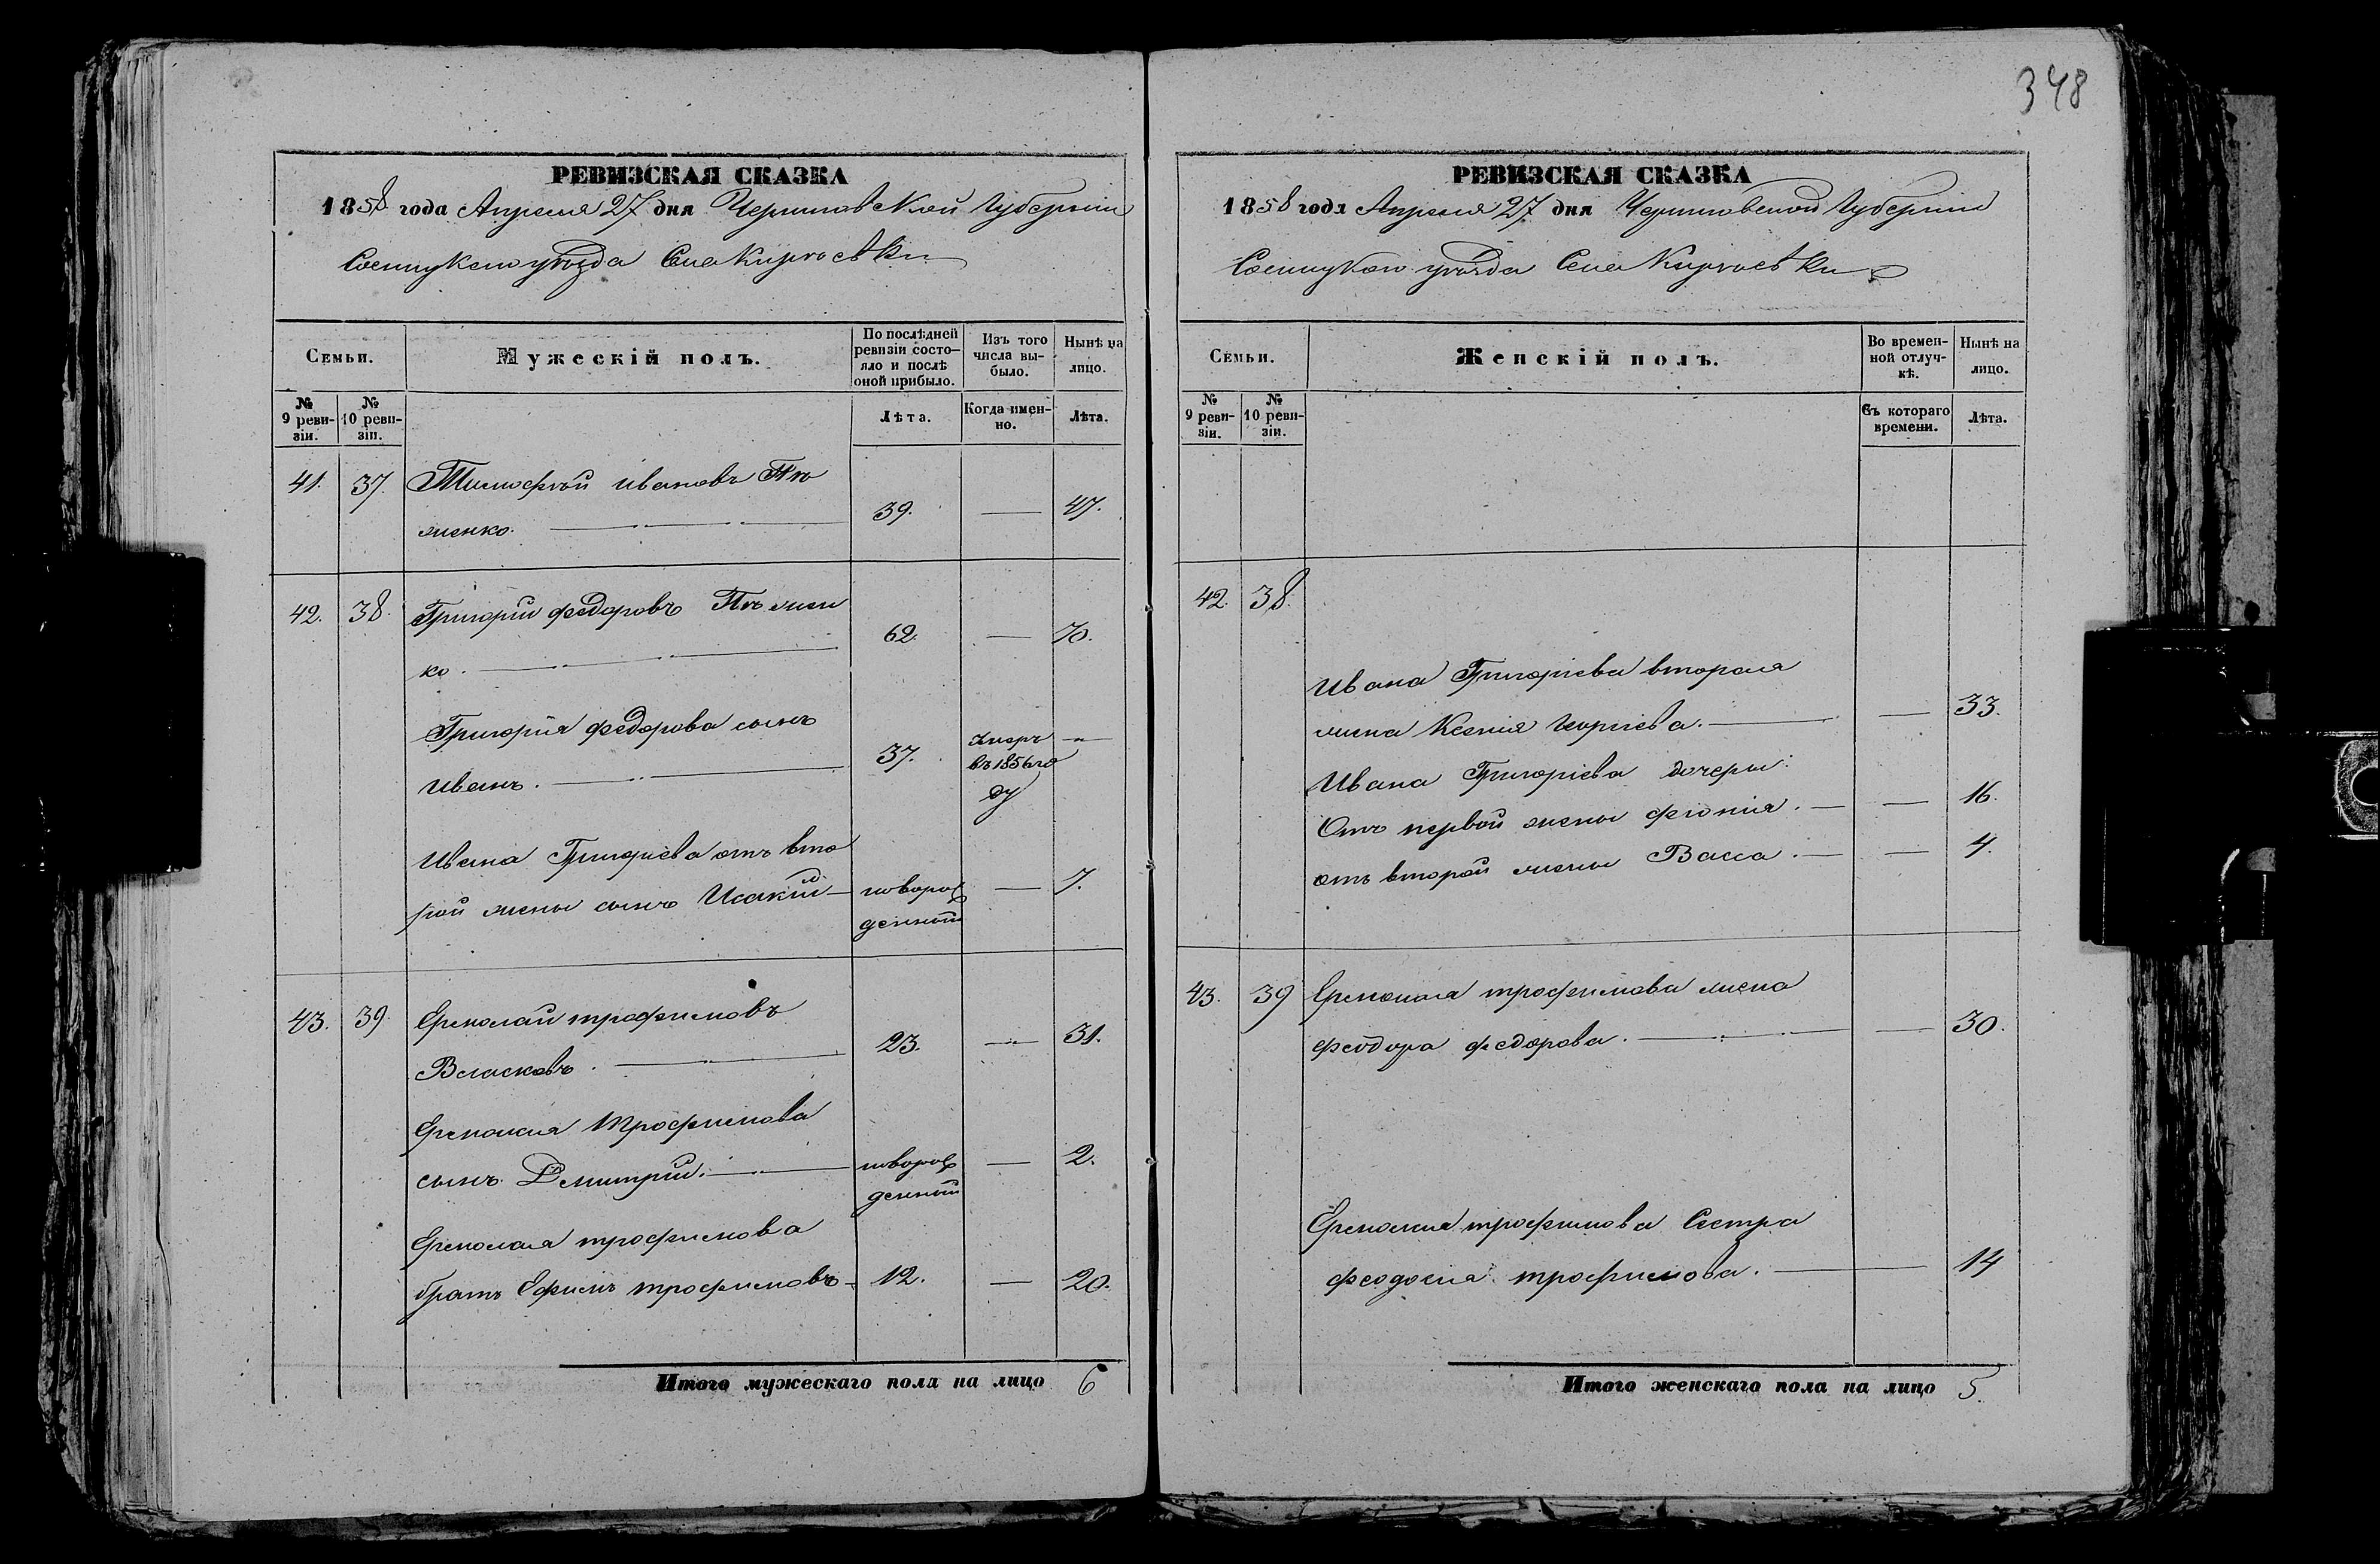 348
РЕВИЗСКАЯ СКАЗКА
1858 года Апреля 27 дня Черниговской Губернии
Сосницкого уѣзда Села Киріевки
Семьи.
Мужескій полъ.
По послѣдней ревизіи состояло и послѣ оной прибыло.
Изъ того числа выбыло.
Нынѣ на лицо.
№ 9 ревизіи.
№ 10 ревизіи.
Лѣта.
Когда именно.
Лѣта.
41. 37. Тимофѣй Ивановъ
женко. 39. — 47.
42. 38. Григорій Федоровъ
ко. 62. — 70.
Григорія Федорова сынъ
Иванъ. 37. Умеръ въ 1856 году —
Ивана Григоріева отъ вто
рой жены сынъ Исакій — новорож
денный — 7.
43. 39. Ермолай Трофимовъ
Власковъ. 23. — 31.
Ермолая Трофимова
сынъ Дмитрій. — новорож
денный — 2.
Ермолая Трофимова
братъ Ефимъ Трофимовъ — 12. — 20.
Итого мужескаго пола на лицо 6
РЕВИЗСКАЯ СКАЗКА
1858 года Апреля 27 дня Черниговской Губернии
Сосницкого уѣзда Села Киріевки
Семьи.
Женскій полъ.
Во временной отлучкѣ.
Нынѣ на лицо.
№ 9 ревизіи.
№ 10 ревизіи.
Съ котораго времени.
Лѣта.
42. 38.
Ивана Григоріева вторая
жена Ксенія — 33.
Ивана Григоріева дочери:
Отъ первой жены — 16.
отъ второй жены Васса. — 4.
43. 39 Ермолая Трофимова жена
Федора Федорова. — 30.
Ермолая Трофимова Сестра
Феодосія Трофимова. — 14
Итого женскаго пола на лицо 5.